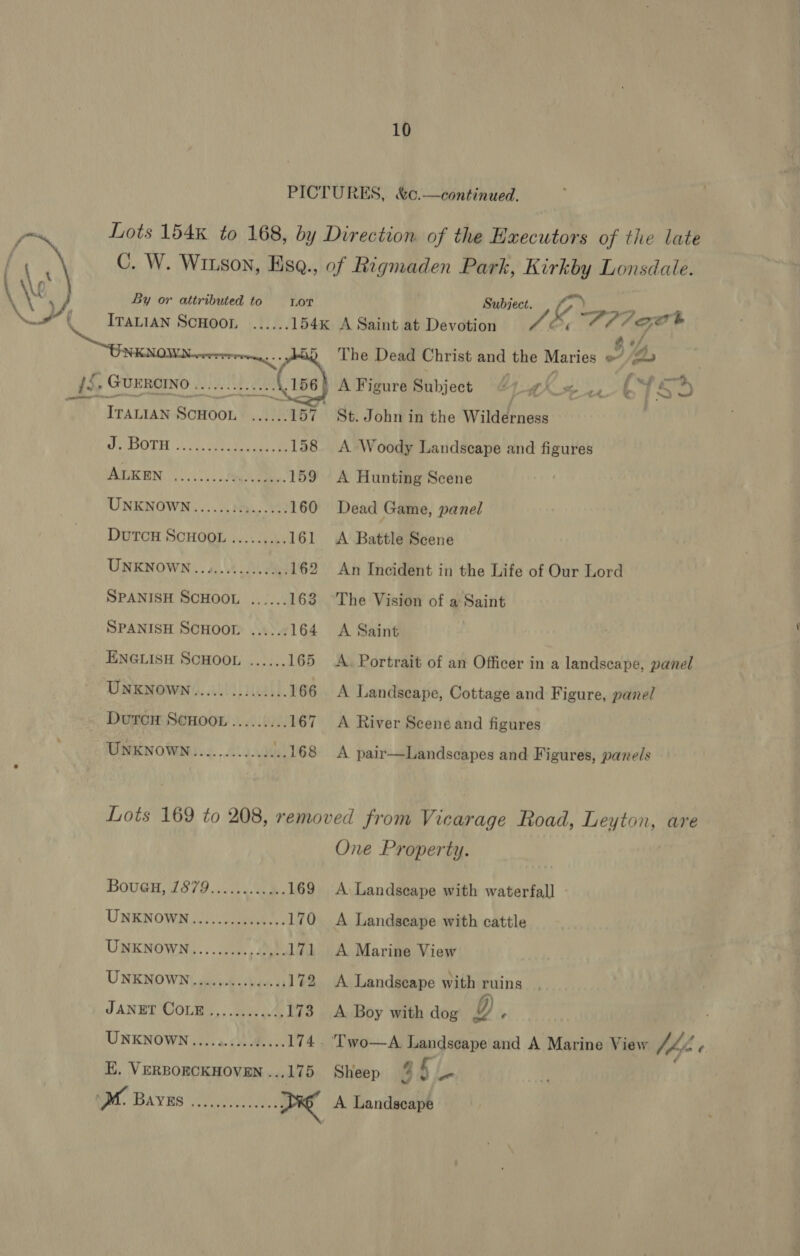 10
PICTURES, &c.—continued.
Lots 154K to 168, by Direction of the Executors of the late
C. W. WILSON, ESQ., of Rigmaden Park, Kirkby Lonsdale.
By or attributed to LOT Subject.
ITALIAN SCHOOL ......154K A Saint at Devotion
UNKNOWN The Dead Christ and the Maries
GUERCINO 156 A Figure Subject
ITALIAN SCHOOL ......157 St. John in the Wilderness
J. BOTH ..................158 A Woody Landscape and figures
ALKEN ..................159 A Hunting Scene
UNKNOWN...............160 Dead Game, panel
DUTCH SCHOOL .........161 A Battle Scene
UNKNOWN...............162 An Incident in the Life of Our Lord
SPANISH SCHOOL ......163 The Vision of a Saint
SPANISH SCHOOL ......164 A Saint
ENGLISH SCHOOL ......165 A Portrait of an Officer in a landscape, panel
UNKNOWN...............166 A Landscape, Cottage and Figure, panel
DUTCH SCHOOL .........167 A River Scene and figures
UNKNOWN...............168 A pair—Landscapes and Figures, panels
Lots 169 to 208, removed from Vicarage Road, Leyton, are
One Property.
BOUGH, 1879............169 A Landscape with waterfall
UNKNOWN...............170 A Landscape with cattle
UNKNOWN...............171 A Marine View
UNKNOWN...............172 A Landscape with ruins
JANET COLE ............173 A Boy with dog
UNKNOWN...............174 Two—A Landscape and A Marine View
E. VERBOECKHOVEN ...175 Sheep
M. BAYES ............... A Landscape